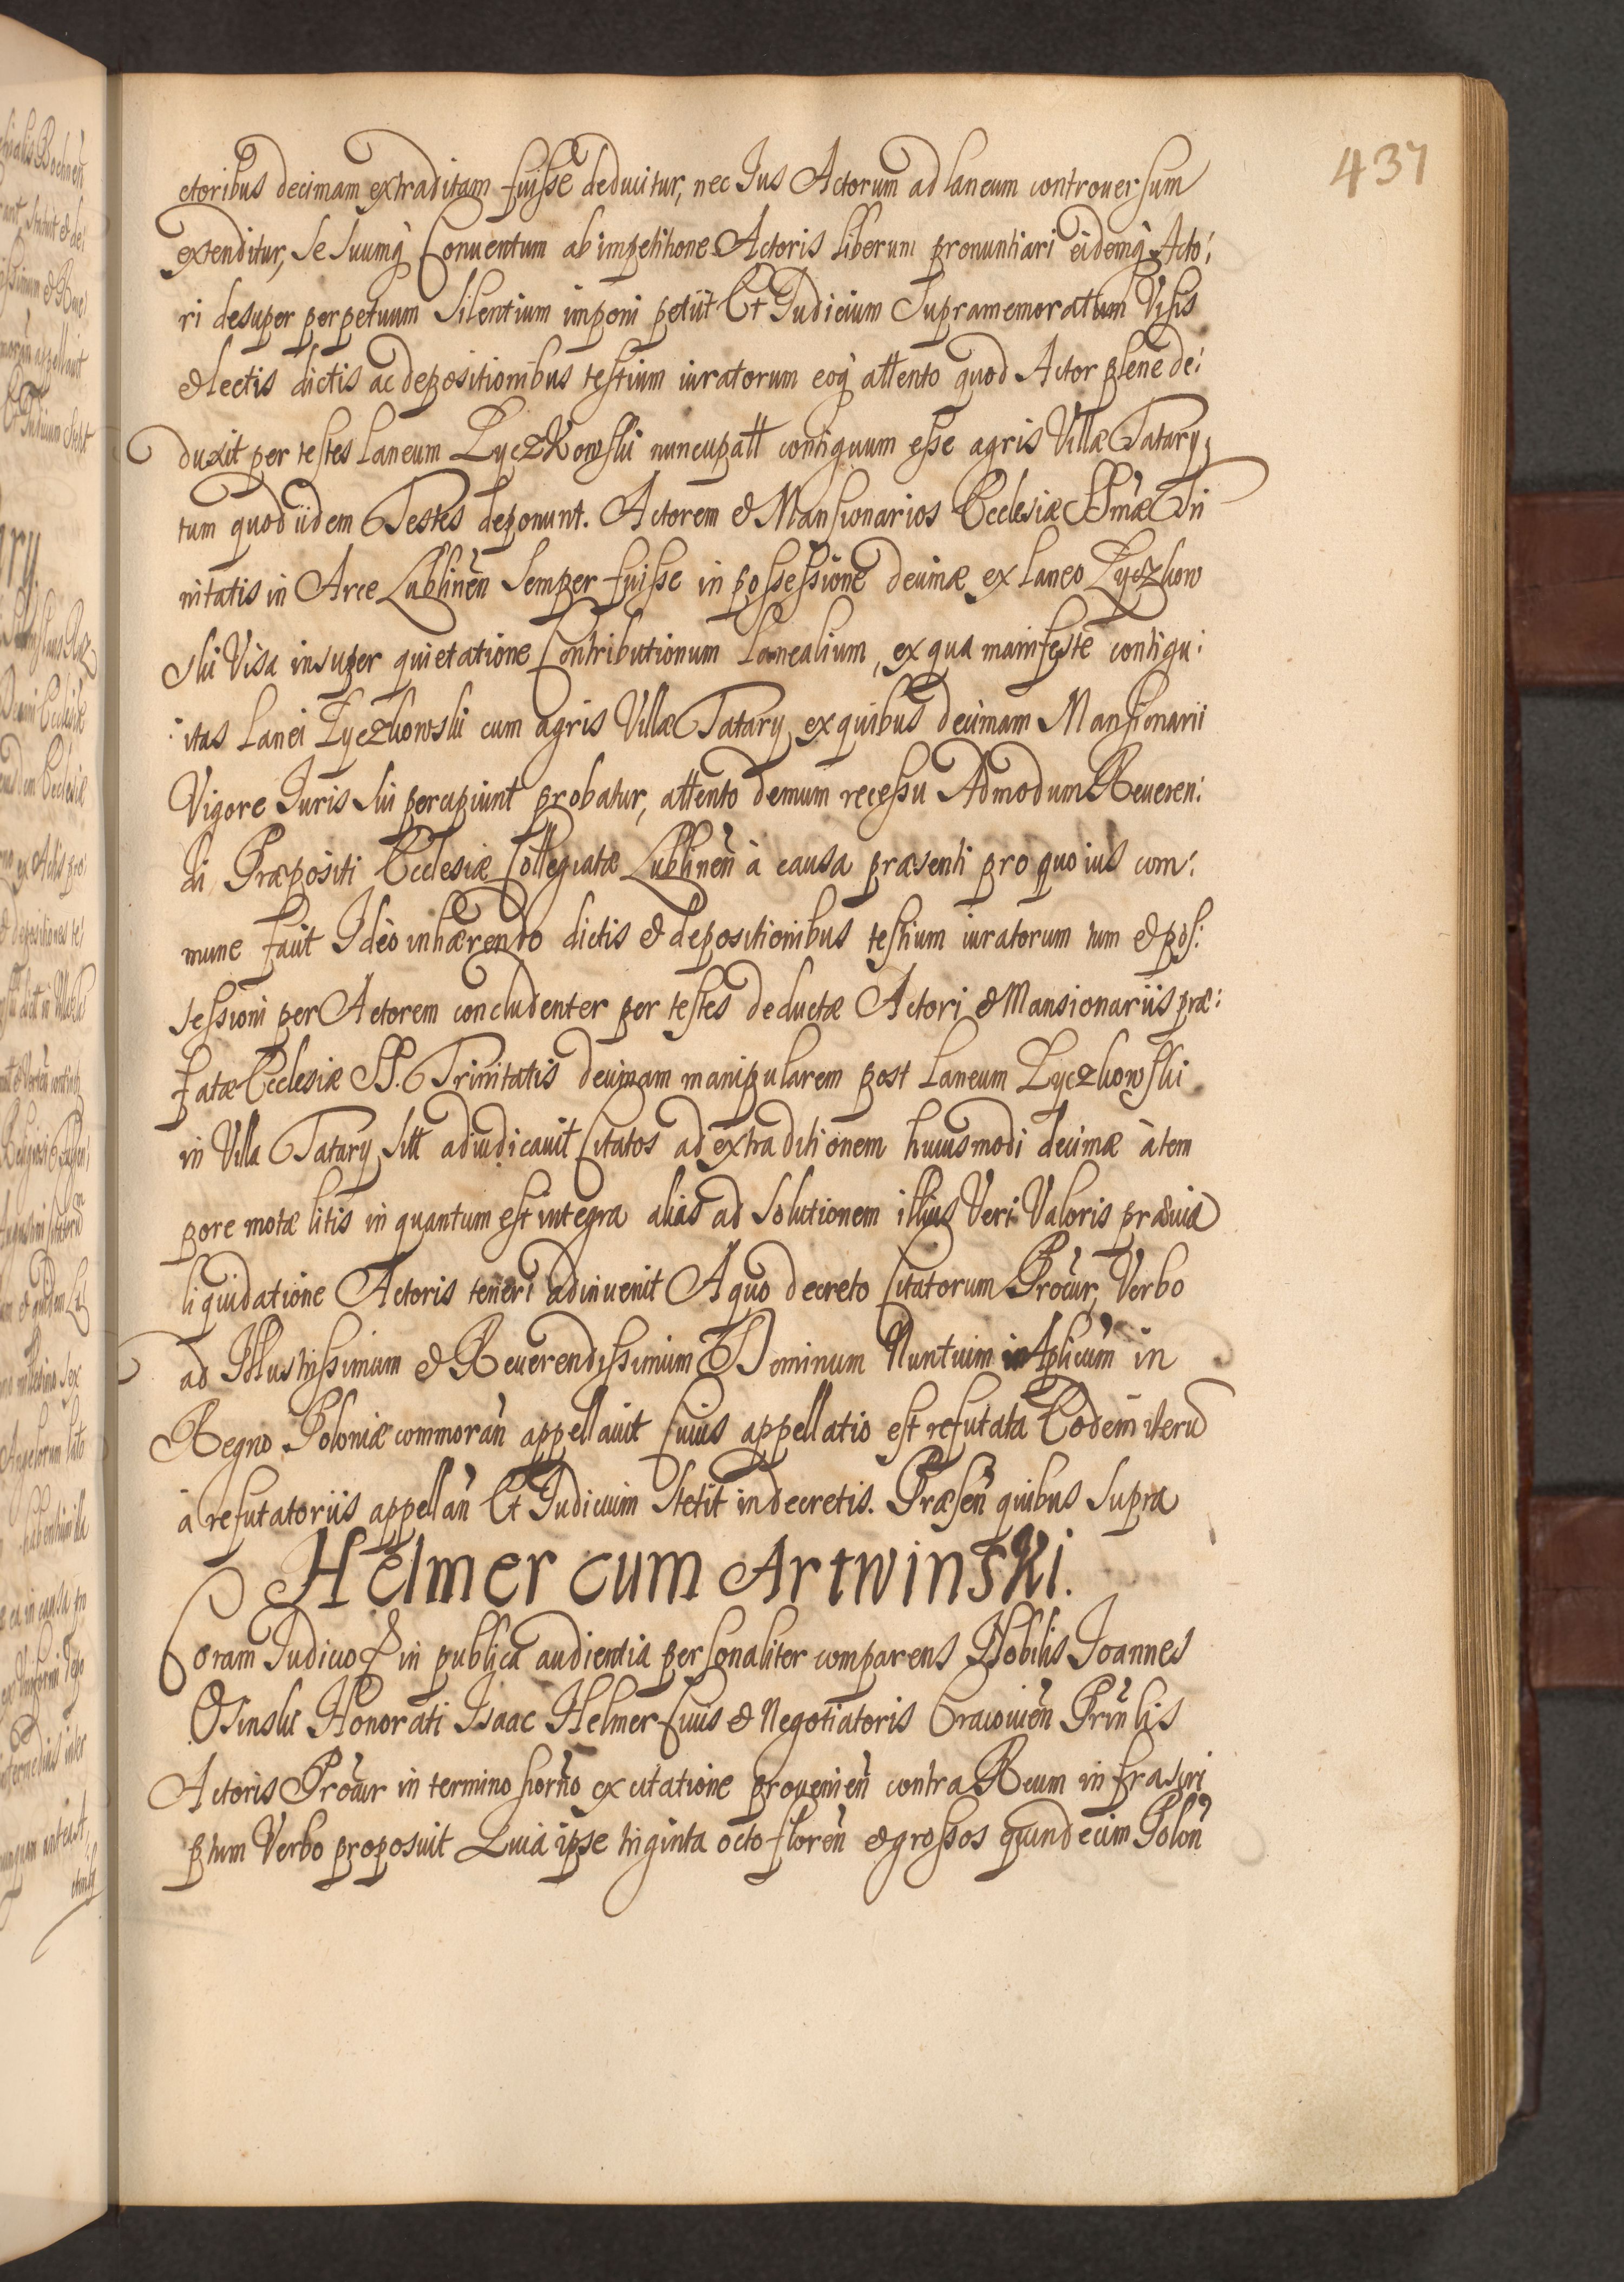 437
ctoribus decimam extraditam fuisse deducitur, nec Ius Actorum ad laneum controuersum
extenditur, se suumq̀ Conuentum ab impetitione Actoris liberum pronuntiari eidemq̀ Acto:
ri desuper perpetuum silentium imponi petiit Et Iudicium Supramemoratum Visis
& lectis dictis ac depositionibus testium iuratorum eoq̀ attento quod Actor plene de:
duxit per testes Laneum Lyczkowski nuncupatt contiguum esse agris Villæ Tatary,
tum quod iidem Testes deponunt. Actorem & Mansionarios Ecclesiæ SSmæ Tri
nitatis in Arce Lublinen̄ semper fuisse in possessione decimæ ex laneo Lyczkow
ski Visa insuper quietatione Contributionum Lanealium, ex qua manifestè contigu:
:itas Lanei Lyczkowski cum agris Villæ Tatary, ex quibus decimam Mansionarii
Vigore Iuris sui percipiunt probatur, attento demum recessu Admodum Reueren:
di Præpositi Ecclesiæ Collegiatæ Lublinen̄ à causa præsenti pro quo ius com:
mune facit Ideò inhærendo dictis & depositionibus testium iuratorum tum & pos:
sessioni per Actorem concludenter per testes deductæ Actori & Mansionariis præ:
fatæ Ecclesiæ SS. Trinitatis decimam manipularem post Laneum Lyczkowski
in Villa Tatary sitt adiudicauit Citatos ad extraditionem huiusmodi decimæ à tem
pore motæ litis in quantum est integra alias ad solutionem illius Veri Valoris præuia
liquidatione Actoris teneri adinuenit A quo decreto Citatorum Procur, Verbo
ad Illustrissimum & Reuerendissimum D Dominum Nuntium Aplicum in
Regno Poloniæ commoran̄ appellauit Cuius appellatio est refutata Eodem iterū
à refutatoriis appellan̄ Et Iudicium stetit in decretis. Præsen̄ quibus supra
Helmer cum Artwinski.
Coram Iudicio & in publica audientia personaliter comparens Nobilis Ioannes
Osinski Honorati Isaac Helmer Ciuis & Negotiatoris Cracouien̄ Prin̄lis
Actoris Procur in termino horno ex citatione prouenien̄ contra Reum infrascri
ptum Verbo proposuit Quia ipse triginta octo floren̄ & grossos quindecim Polon̄